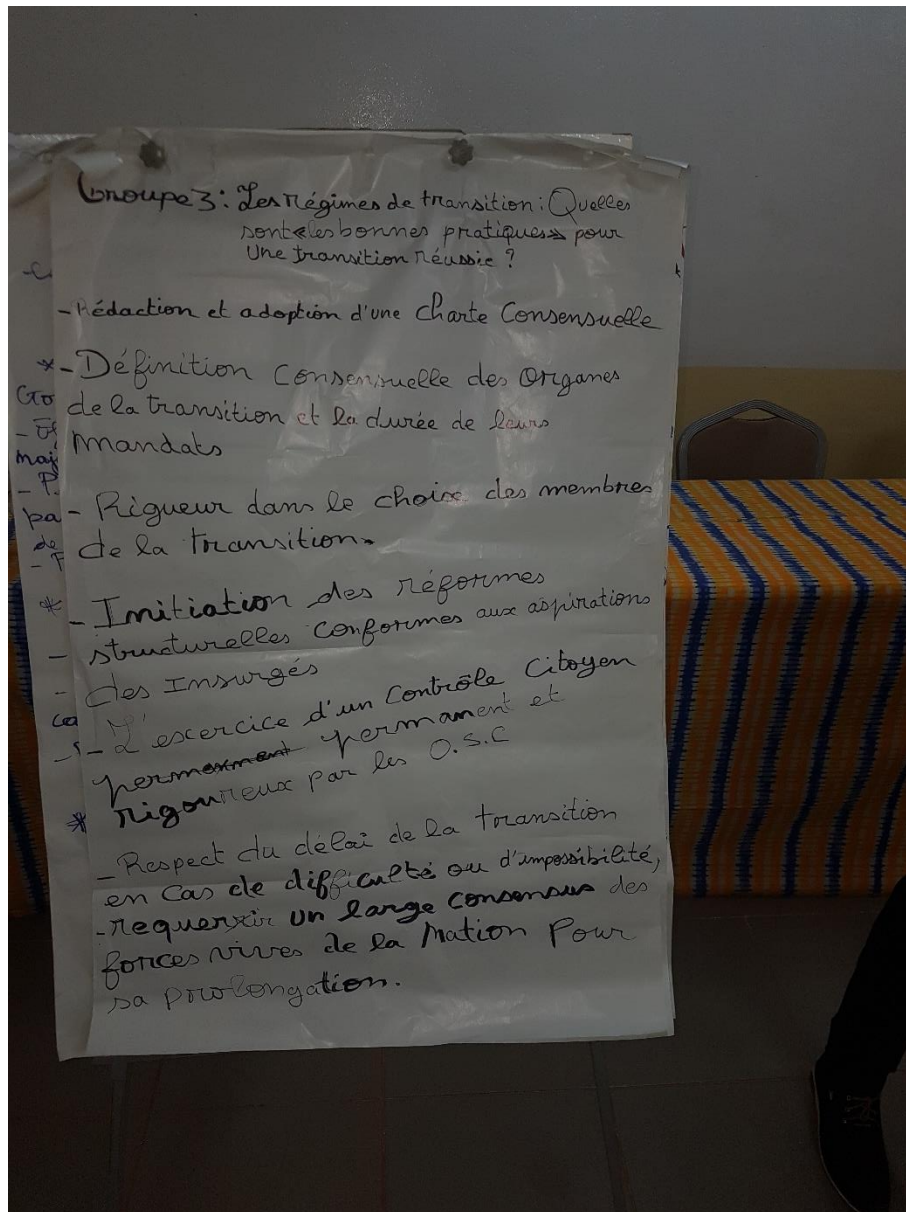 Groupe 3: Les Régimes de transition: Quelles
sont «les bonnes pratiques» pour
Une transition réussie ?
- Rédaction et adoption d'une Charte Consensuelle
- Définition Consensuelle des Organes
de la transition et la durée de leurs
mandats
- Rigueur dans le choix des membres
de la transition.
- Initiation des réformes
structurelles conformes aux aspirations
des Insurgés
- L'exercice d'un Contrôle Citoyen
permanent et
rigoureux par les O.S.C
- Respect du délai de la transition
en cas de difficulté ou d'impossibilité,
- requerir un large consensus des
forces vives de la Nation Pour
sa prolongation.